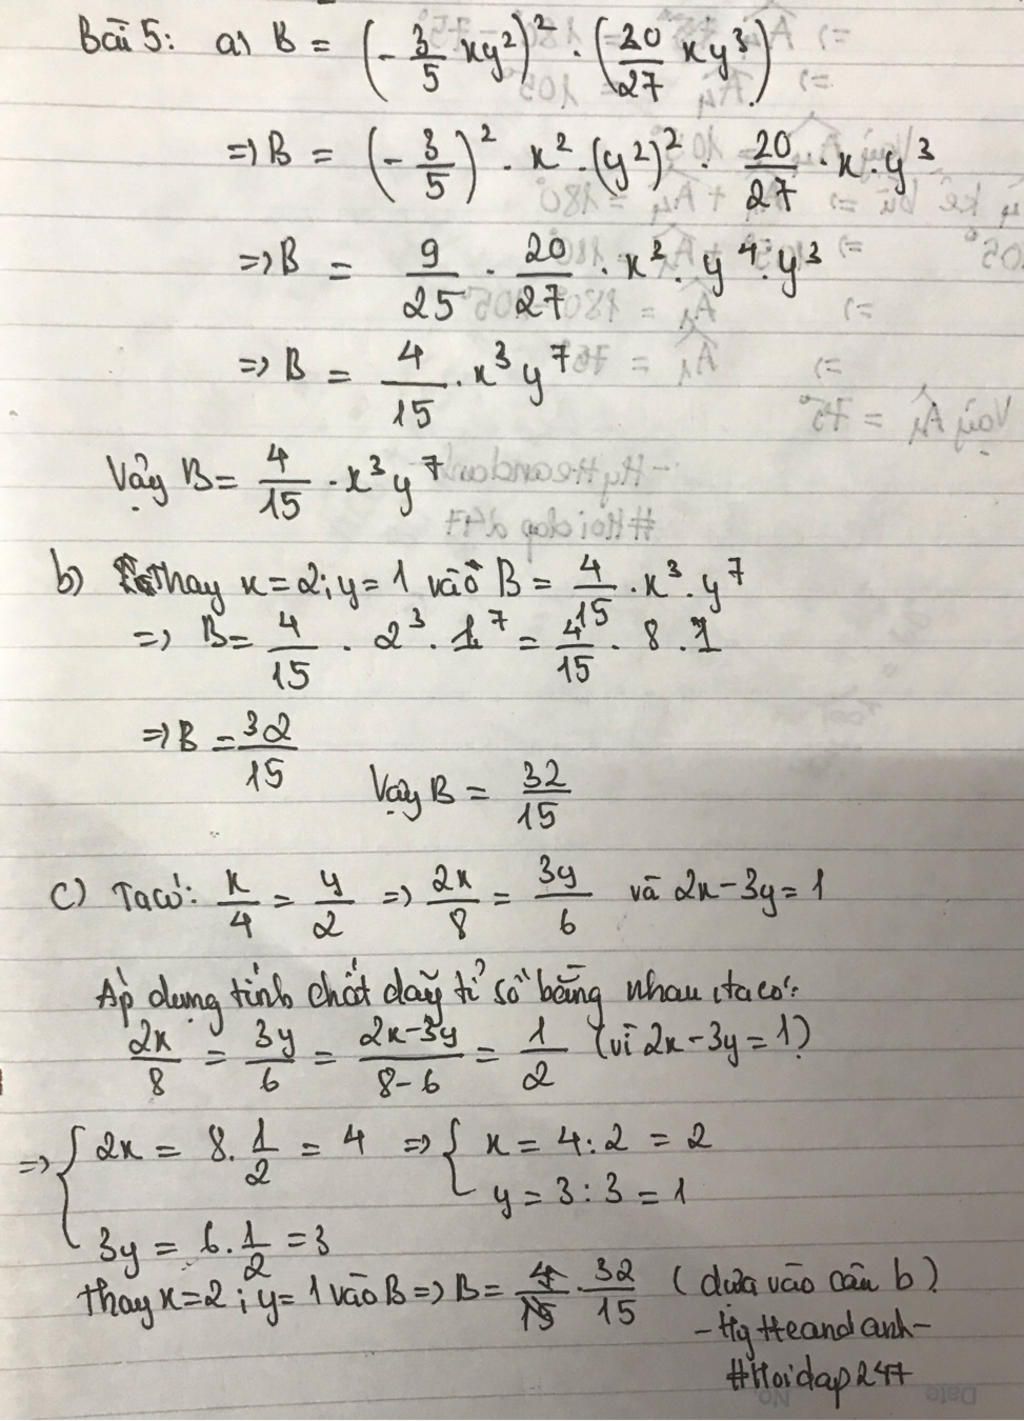 Bài 5: a) B = (-3/5 xy²)² . (20/27 xy³)
=> B = (-3/5)² . x² . (y²)² . 20/27 . x . y³
=> B = 9/25 . 20/27 . x³ . y⁴ . y³
=> B = 4/15 . x³y⁷
Vậy B = 4/15 . x³y⁷
b) thay x=2; y=1 vào B = 4/15 . x³ . y⁷
=> B = 4/15 . 2³ . 1⁷ = 4/15 . 8 . 1
=> B = 32/15
Vậy B = 32/15
c) Ta có: x/4 = y/2 => 2x/8 = 3y/6 và 2x-3y=1
Áp dụng tính chất dãy tỉ số bằng nhau, ta có:
2x/8 = 3y/6 = 2x-3y/8-6 = 1/2 (vì 2x-3y=1)
=> { 2x = 8.1/2 = 4 => { x = 4:2 = 2
y = 3:3 = 1
3y = 6.1/2 = 3
thay x=2; y=1 vào B => B = 32/15 (dựa vào câu b)
-HyHeandanh-
#Hoidap247